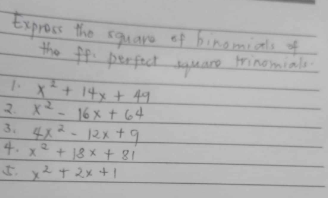 Express the square of binomials of
the ff. perfect square trinomials.
1. x² + 14x + 49
2. x² - 16x + 64
3. 4x² - 12x + 9
4. x² + 18x + 81
5. x² + 2x + 1